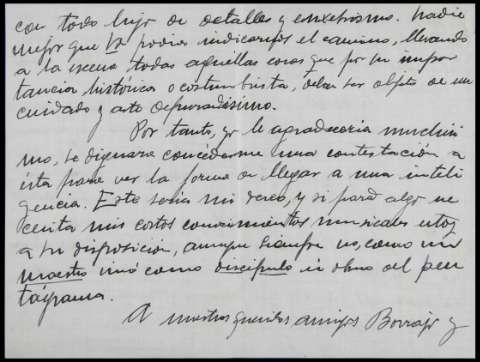 con todo lujo de detalles y
mejor que Vd podria indicarnos el camino, llevando
a la escena todas aquellas cosas que por su impor
tancia histórica o costumbrista, deben ser objeto de un
cuidado y arte depuradisimo.
Por tanto, yo le agradeceria muchisi
mo, se dignara concederme una contestación a
ésta para ver la forma de llegar a una inteli
gencia. Este seria mi deseo, y si para algo ne
cesita mis cortos conocimientos musicales estoy
a su disposición, aunque siempre no, como un
maestro sinó como discipulo in del pen
tágrama.
A nuestros queridos amigos Borrajo y